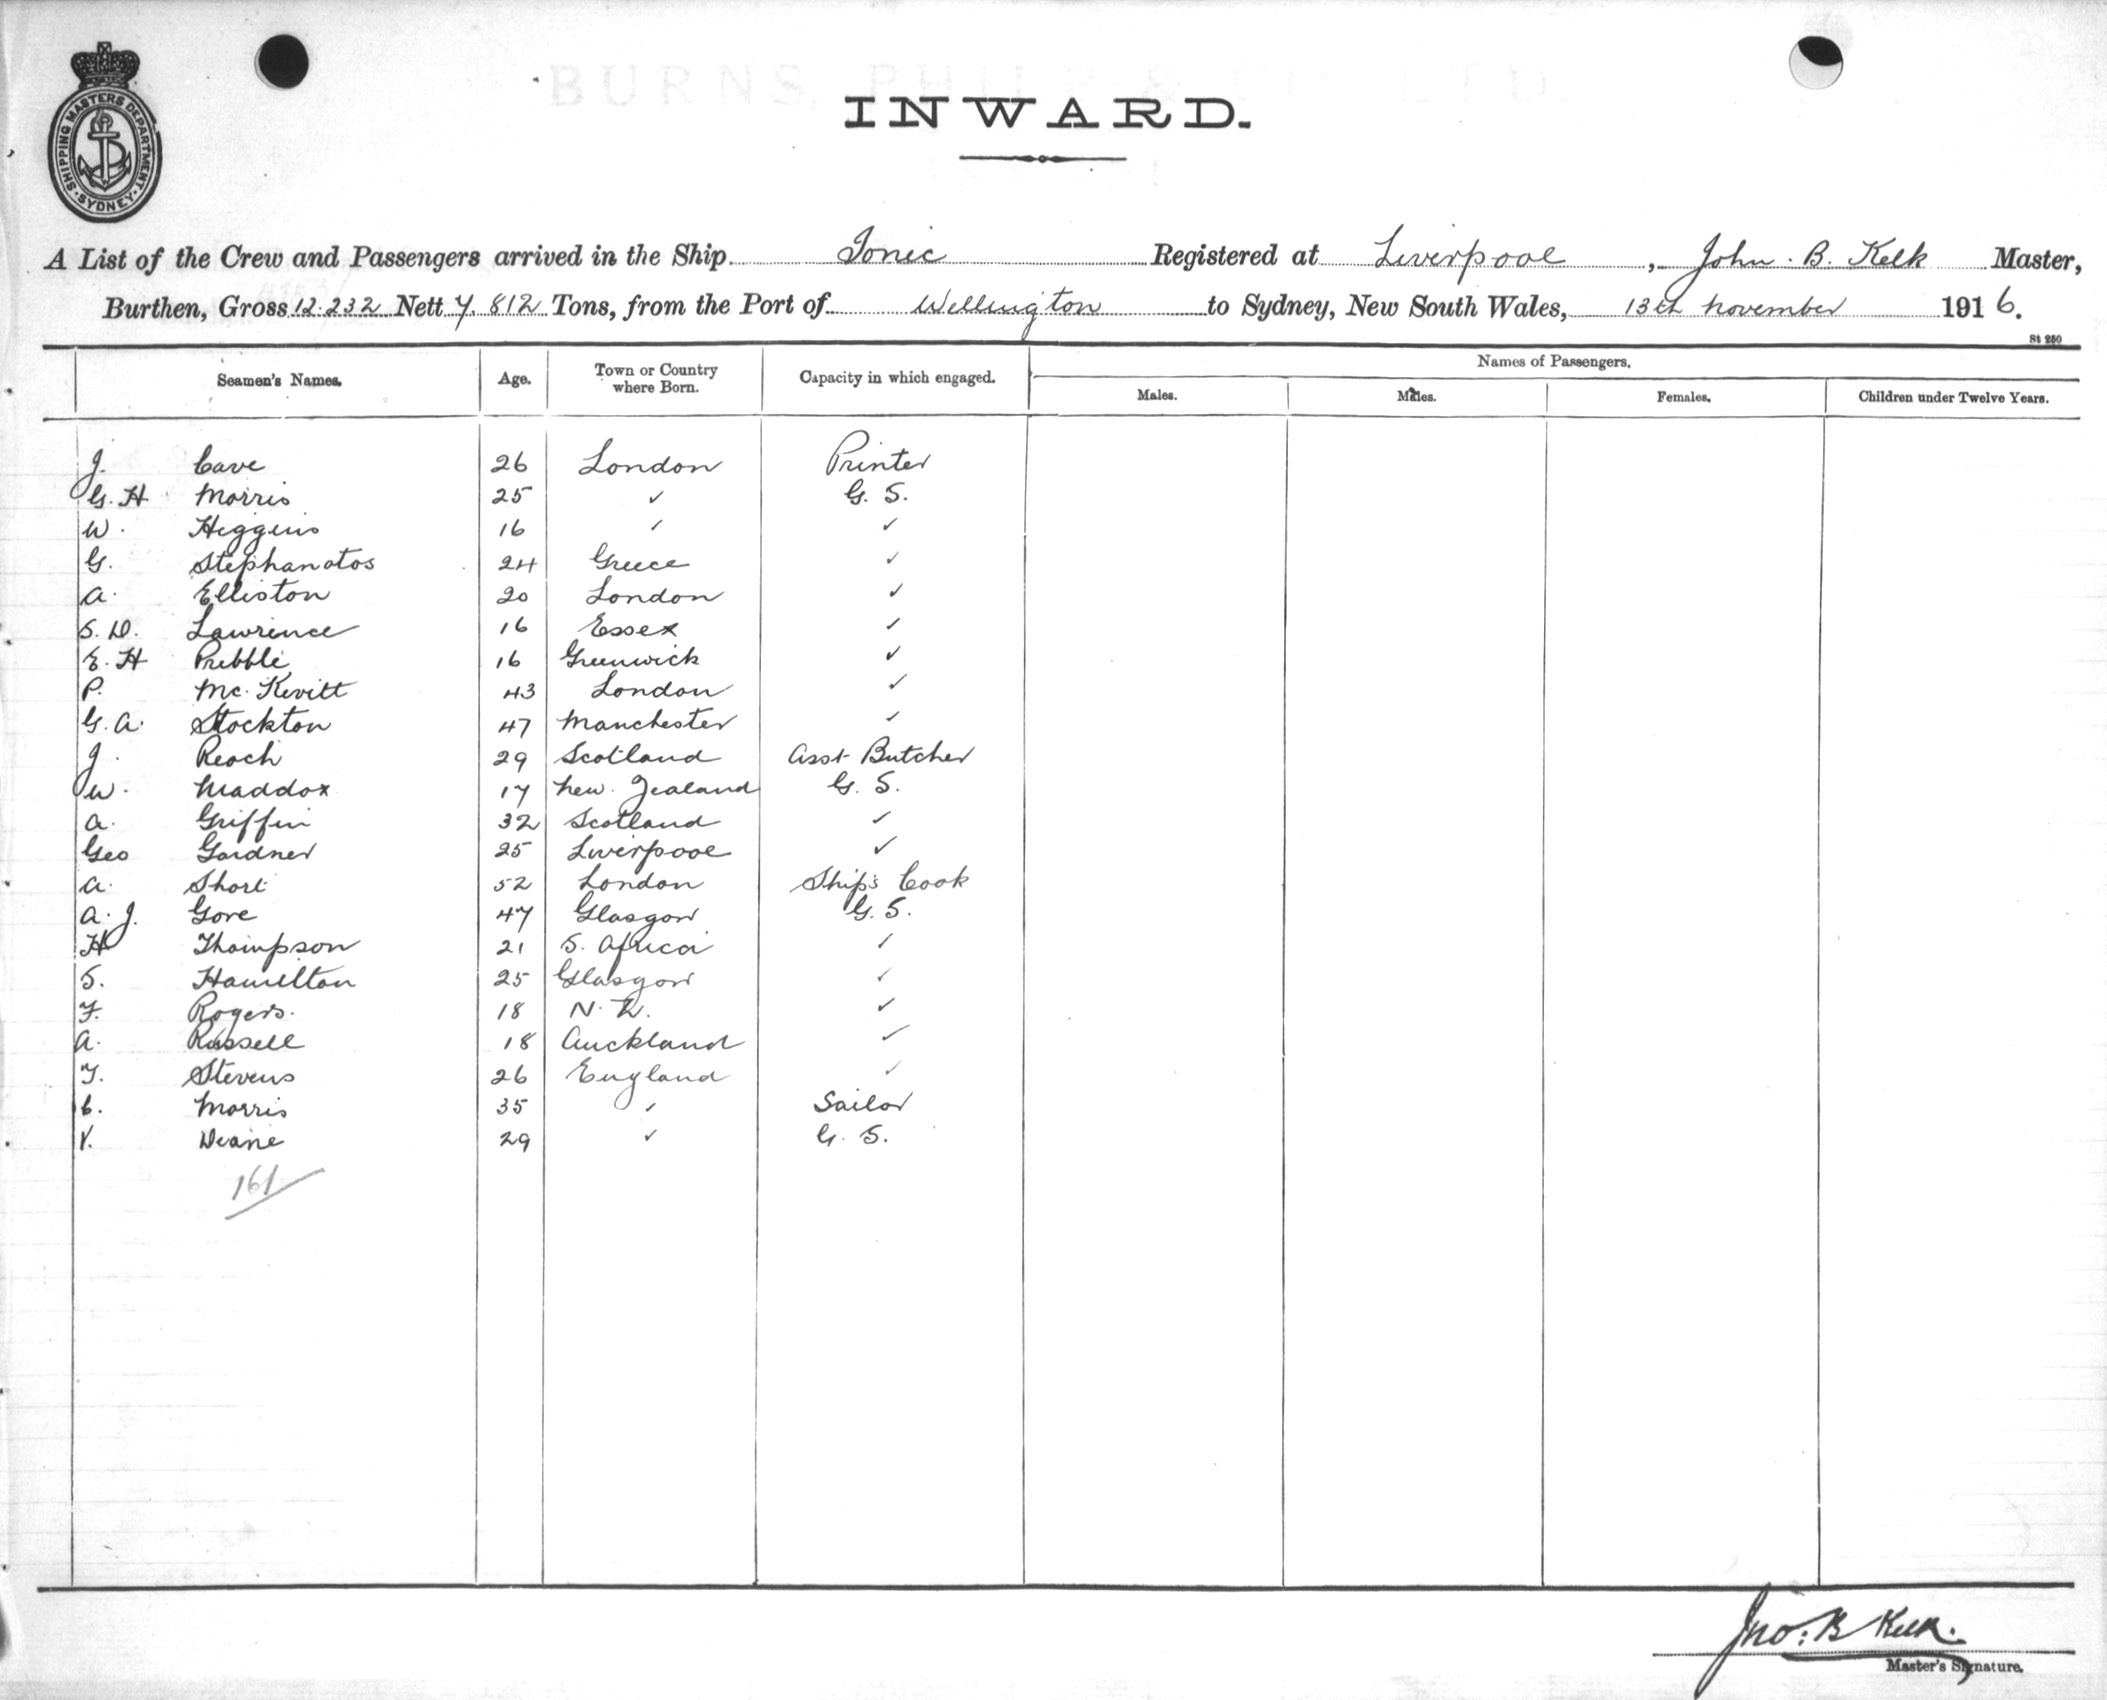 BURNS PHILP & CO LTD
INWARD.
SHIPPING MASTERS DEPARTMENT · SYDNEY ·
A List of the Crew and Passengers arrived in the Ship Ionic Registered at Liverpool, John. B. Kelk Master,
Burthen, Gross 12.232 Nett 7.812 Tons, from the Port of Wellington to Sydney, New South Wales, 13th November 1916.
St 250
Seamen's Names. Age. Town or Country where Born. Capacity in which engaged. Names of Passengers.
Males. Males. Females. Children under Twelve Years.
J. Cave 26 London Printer
G. H Morris 25 ✓ G. S.
W. Higgins 16 ✓ ✓
G. Stephanatos 24 Greece ✓
A. Elliston 20 London ✓
S. D. Lawrence 16 Essex ✓
E. H Pribble 16 Greenwick ✓
P. Mc. Kevitt 43 London ✓
G. A. Stockton 47 Manchester ✓
J. Reoch 29 Scotland Asst Butcher
W. Maddox 17 New. Zealand G. S.
A. Griffin 32 Scotland ✓
Geo Gardner 25 Liverpool ✓
A. Short 52 London Ship's Cook
A. J. Gore 47 Glasgow G. S.
H Thompson 21 S. Africa ✓
S. Hamilton 25 Glasgow ✓
F. Rogers. 18 N. Z. ✓
A. Russell 18 Auckland ✓
T. Stevens 26 England ✓
C. Morris 35 ✓ Sailor
V. Deane 29 ✓ G. S.
161
Jno: B Kelk.
Master's Signature.